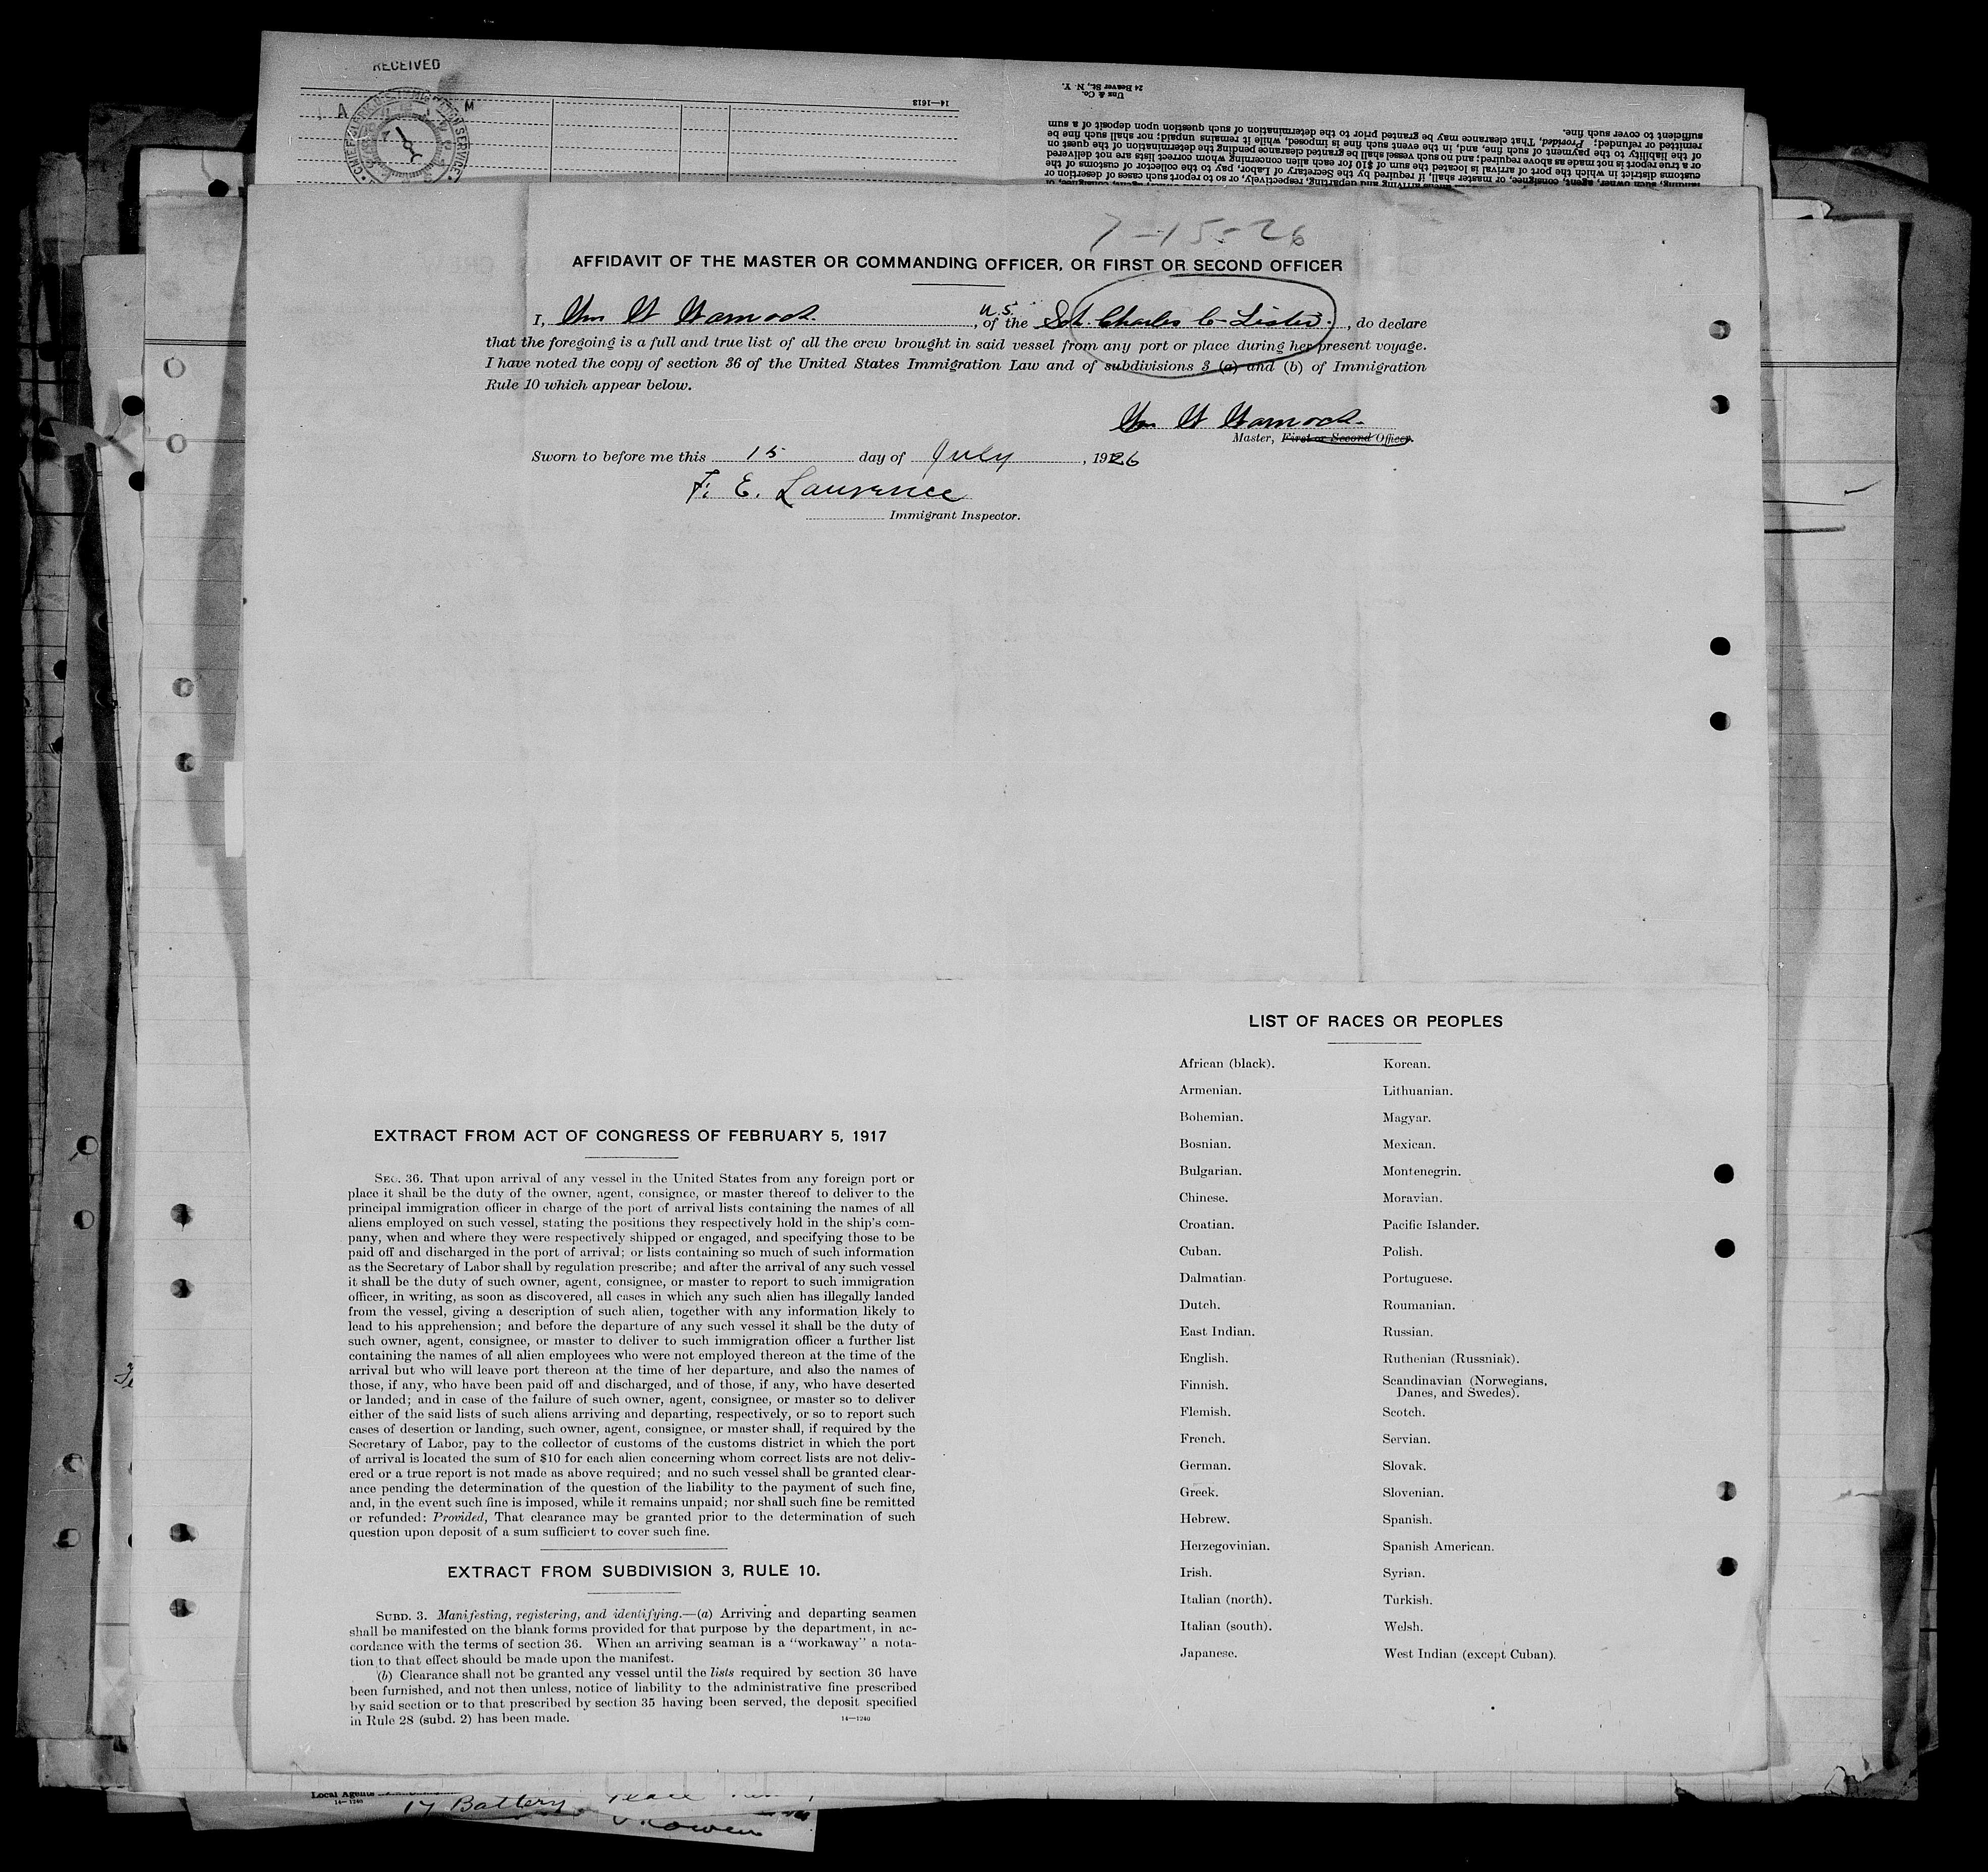 RECEIVED
A M
14—1613
Unz & Co.
24 Beaver St., N. Y.
landing, such owner, agent, consignee, or master shall, if required by the Secretary of Labor, pay to the collector of customs of the
customs district in which the port of arrival is located the sum of $10 for each alien concerning whom correct lists are not delivered
or a true report is not made as above required; and no such vessel shall be granted clearance pending the determination of the quest on
of the liability to the payment of such fine, and, in the event such fine is imposed, while it remains unpaid; nor shall such fine be
remitted or refunded: Provided, That clearance may be granted prior to the determination of such question upon deposit of a sum
sufficient to cover such fine.
7-15-26
AFFIDAVIT OF THE MASTER OR COMMANDING OFFICER, OR FIRST OR SECOND OFFICER
I, Wm W , of the U.S. Sch. Charles C Lister, do declare
that the foregoing is a full and true list of all the crew brought in said vessel from any port or place during her present voyage.
I have noted the copy of section 36 of the United States Immigration Law and of subdivisions 3 (a) and (b) of Immigration
Rule 10 which appear below.
Wm W
Master, First or Second Officer.
Sworn to before me this 15 day of July, 1926
F. E. Lawrence
Immigrant Inspector.
EXTRACT FROM ACT OF CONGRESS OF FEBRUARY 5, 1917
SEC. 36. That upon arrival of any vessel in the United States from any foreign port or
place it shall be the duty of the owner, agent, consignee, or master thereof to deliver to the
principal immigration officer in charge of the port of arrival lists containing the names of all
aliens employed on such vessel, stating the positions they respectively hold in the ship's com-
pany, when and where they were respectively shipped or engaged, and specifying those to be
paid off and discharged in the port of arrival; or lists containing so much of such information
as the Secretary of Labor shall by regulation prescribe; and after the arrival of any such vessel
it shall be the duty of such owner, agent, consignee, or master to report to such immigration
officer, in writing, as soon as discovered, all cases in which any such alien has illegally landed
from the vessel, giving a description of such alien, together with any information likely to
lead to his apprehension; and before the departure of any such vessel it shall be the duty of
such owner, agent, consignee, or master to deliver to such immigration officer a further list
containing the names of all alien employees who were not employed thereon at the time of the
arrival but who will leave port thereon at the time of her departure, and also the names of
those, if any, who have been paid off and discharged, and of those, if any, who have deserted
or landed; and in case of the failure of such owner, agent, consignee, or master so to deliver
either of the said lists of such aliens arriving and departing, respectively, or so to report such
cases of desertion or landing, such owner, agent, consignee, or master shall, if required by the
Secretary of Labor, pay to the collector of customs of the customs district in which the port
of arrival is located the sum of $10 for each alien concerning whom correct lists are not deliv-
ered or a true report is not made as above required; and no such vessel shall be granted clear-
ance pending the determination of the question of the liability to the payment of such fine,
and, in the event such fine is imposed, while it remains unpaid; nor shall such fine be remitted
or refunded: Provided, That clearance may be granted prior to the determination of such
question upon deposit of a sum sufficient to cover such fine.
EXTRACT FROM SUBDIVISION 3, RULE 10.
SUBD. 3. Manifesting, registering, and identifying.—(a) Arriving and departing seamen
shall be manifested on the blank forms provided for that purpose by the department, in ac-
cordance with the terms of section 36. When an arriving seaman is a "workaway" a nota-
tion to that effect should be made upon the manifest.
(b) Clearance shall not be granted any vessel until the lists required by section 36 have
been furnished, and not then unless, notice of liability to the administrative fine prescribed
by said section or to that prescribed by section 35 having been served, the deposit specified
in Rule 28 (subd. 2) has been made.
14—1240
LIST OF RACES OR PEOPLES
African (black).
Armenian.
Bohemian.
Bosnian.
Bulgarian.
Chinese.
Croatian.
Cuban.
Dalmatian.
Dutch.
East Indian.
English.
Finnish.
Flemish.
French.
German.
Greek.
Hebrew.
Herzegovinian.
Irish.
Italian (north).
Italian (south).
Japanese.
Korean.
Lithuanian.
Magyar.
Mexican.
Montenegrin.
Moravian.
Pacific Islander.
Polish.
Portuguese.
Roumanian.
Russian.
Ruthenian (Russniak).
Scandinavian (Norwegians,
Danes, and Swedes).
Scotch.
Servian.
Slovak.
Slovenian.
Spanish.
Spanish American.
Syrian.
Turkish.
Welsh.
West Indian (except Cuban).
Local Agents
14—1240
17 Battery